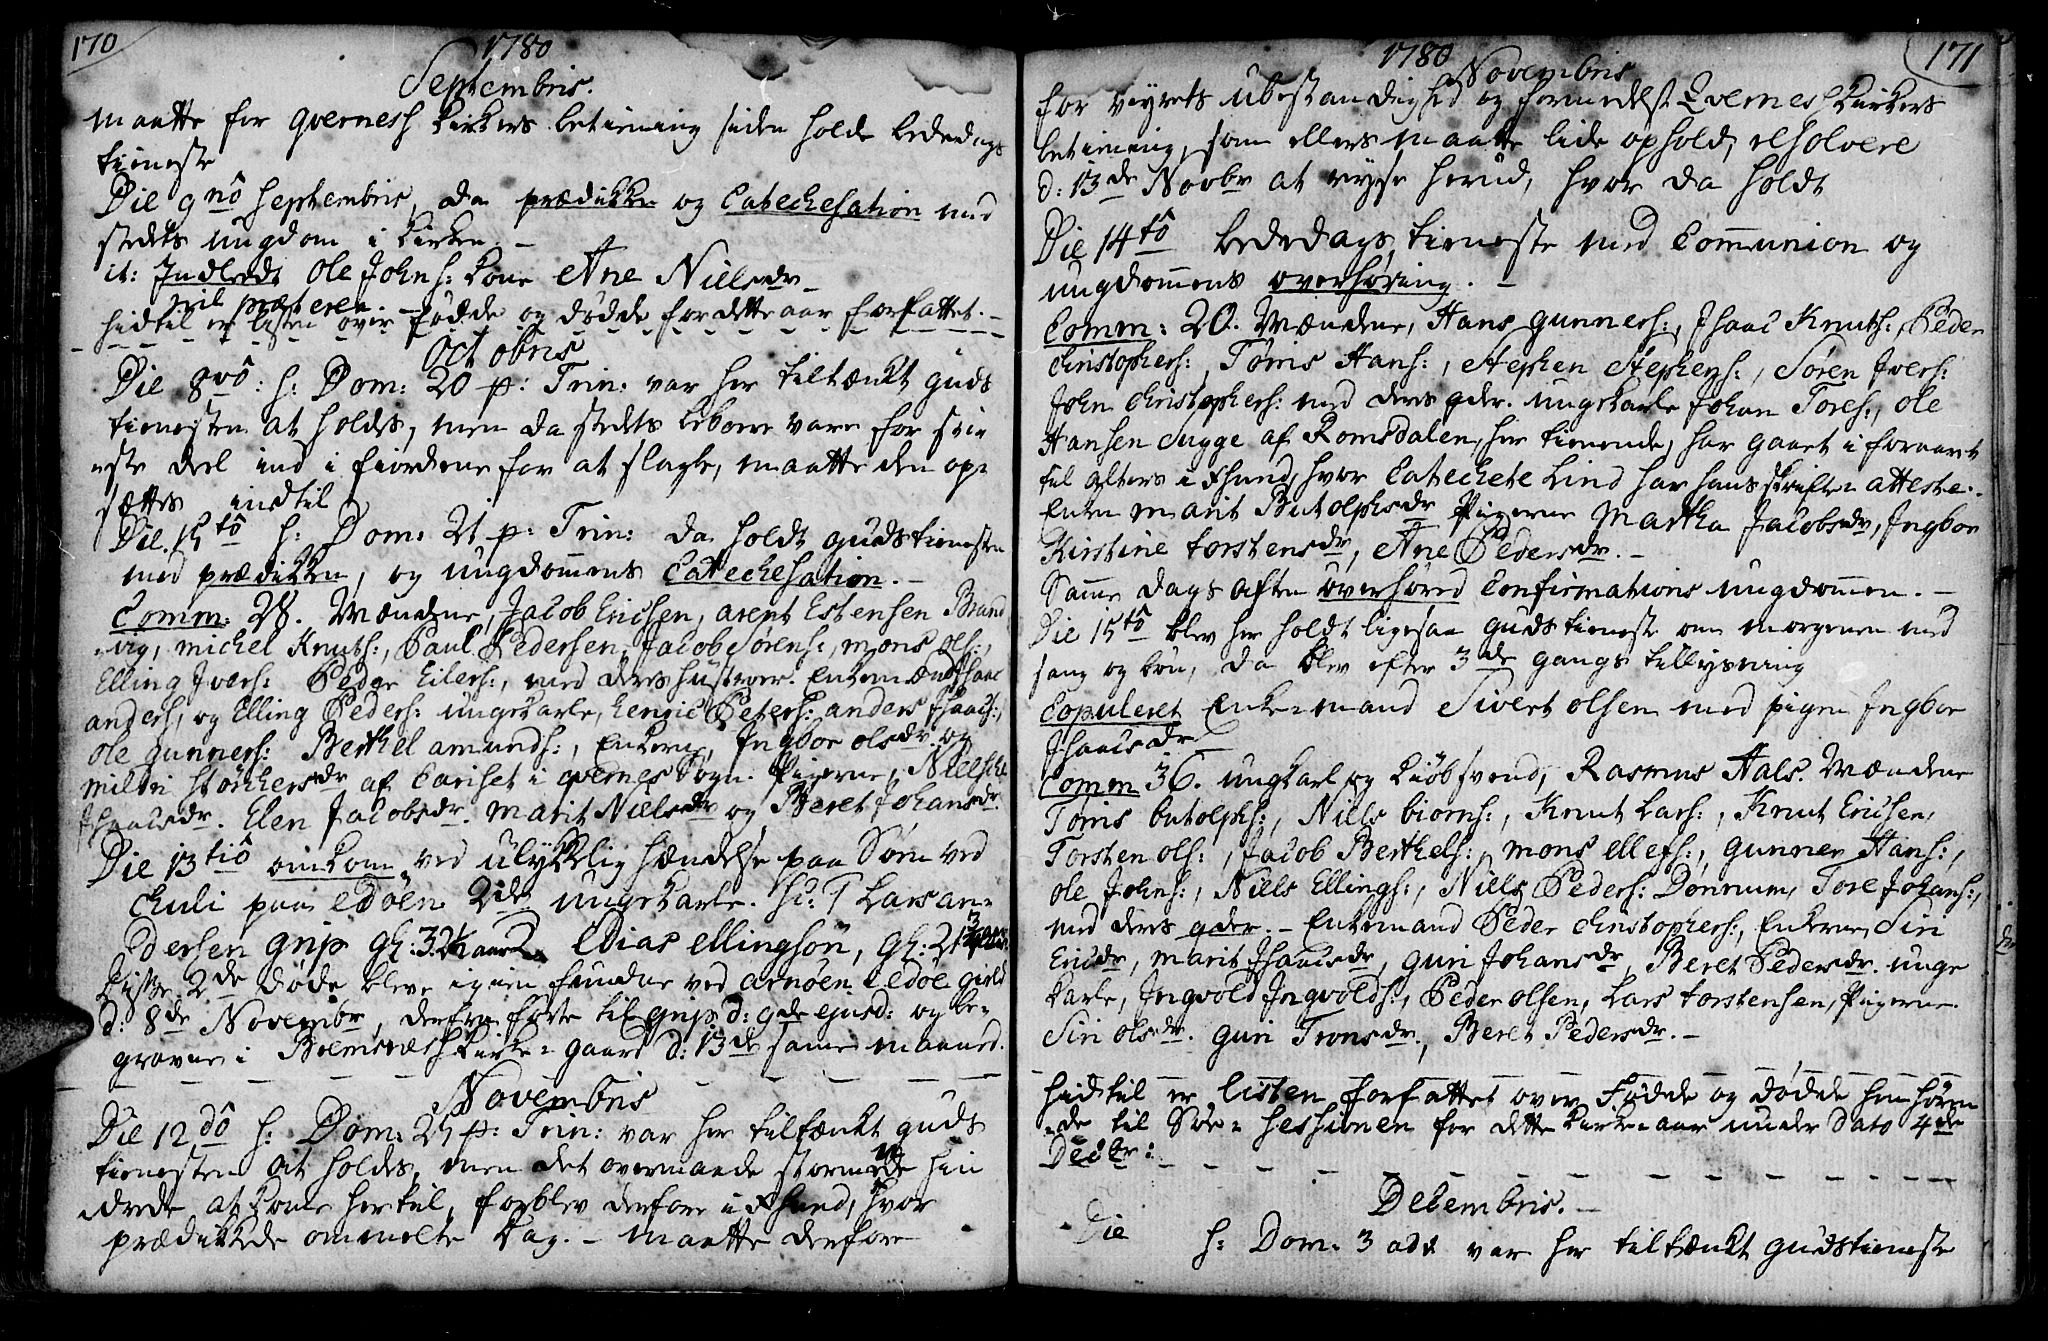 170
1780
Septembris.
maatte for Qverness Kirkes betiening siden holde bededags
tieneste
Die 9nô Septembris, da prædikken og Catechesation med
stedets ungdom i Kirken. –
it: Indledt Ole Johns: Kone Ane Nielsdr –
nil præterea. –
hidtil er listen over fødde og dødde for dette aar forfattet. –
Octobris
Die 8vô: h: Dom: 20 p: Trin: var her tiltænkt guds
tienesten at holdes, men da stedets beboere vare for
este deel ind i fiordene for at slagte, maatte den op=
sættes indtil
Die 15tô h: Dom: 21 p: Trin: da holdt gudstienesten
med prædikken, og ungdommens Catechesation. –
Comm: 28. Mændene, Jacob Ericsen, Arent Estensen Brand
=vig, Michel Knuts:, Paul Pedersen, Jacob Sørens:, Mons Ols:,
Elling Ivers: Peder Eilers:, med deres Hustroer. Enkemænd Isaac
Anders, og Elling Peders: ungekarle, Henric Peters: Anders Isaacs:,
Ole Gunners: Berthel Amunds:, Enkerne, Ingbor Olsdr og
Mildri Størkersdr af Cariset i Qvernes Sogn. Pigerne, Nielsche
Isaacsdr. Elen Jacobsdr. Marit Nielsdr og Beret Johansdr.
Die 13tiô omkom ved ulykkelig hændelse paa Søen ved
Kuli paa Edøen 2de ungekarle. Sc: T Lars An=
dersen Grip Gl: 32 1/2 aar 2. Elias Ellingsøn, Gl: 21
Disse 2de døde bleve igien fundne ved Arnøen i Edøe gield
d: 8de Novembr, derfra førte til Grip d: 9de ejusd: og be=
gravne i Bremsnæss Kirke=gaard d: 13de samme maaned.
Novembris
Die 12dô h: Dom: 25 p: Trin: var her tiltænkt guds
tienesten at holdes, men det overmaade stormede hin
drede at komme hertil, forblev derfore i Xsund, hvor
prædikkede ommelte Dag. – maatte derfore
171
1780
Novembris
for veyrets ubestandighed og formedelst Qverness Kirkes
betiening, som ellers maatte lide ophold, resolvere
d: 13de Novbr at reyse herud, hvor da holdt
Die 14tô bededags tieneste med Communion og
ungdommens overhøring. –
Comm: 20. Mændene, Hans Gunners:, Isaac Knuts:, Peder
Christophers:, Tønis Hans:, Stephen Stephens:, Søren Ivers:
John Christophers: med deres qdr. ungekarle Johan Tores:, Ole
Hansen Sugge af Romsdalen, her tienende, har gaaet i foraaret
til alters i Xsund, hvor Catechete Lind har hans skriftl: atteste.
Enken Marit Butolphsdr Pigerne Martha Jacobsdr, Ingbor
Kirstine Torstensdr, Ane Pedersdr. –
Samme dags aften overhøred Confirmations ungdommen. –
Die 15tô blev her holdt ligesaa gudstieneste om morgenen med
sang og bøn, da blev efter 3de gangs tillysning
Copuleret Enke=mand Sivert Olsen med pigen Ingbor
Isaacsdr
Comm 36. ungkarl og Kiøbsvend, Rasmus Hals. Mændene
Tønis Butolphs:, Niels Biørns:, Knut Lars:, Knut Ericsen,
Torsten Ols:, Jacob Berthels:, Mons Ellefs:, Gunner Hans:,
Ole Johns:, Niels Ellings:, Niels Peders: Dønnum, Tore Johans:,
med deres qdr. – Enkemand Peder Christophers:, Enkerne Siri
Ericdr, Marit Isaacsdr, Guri Johansdr, Beret Pedersdr. unge
karle, Ingvold Ingvolds:, Peder Olsen, Lars Torstensen, Pigerne
Siri Olsdr. Guri Tronsdr., Beret Pedersdr. –
hidtil er listen forfattet over Fødde og Dødde hen høren
=de til Søe=Sessionen for dette Kirke=aar under Dato 4de
Decbr:
Decembris. –
Die h: Dom: 3 adv var her tiltænkt gudstieneste